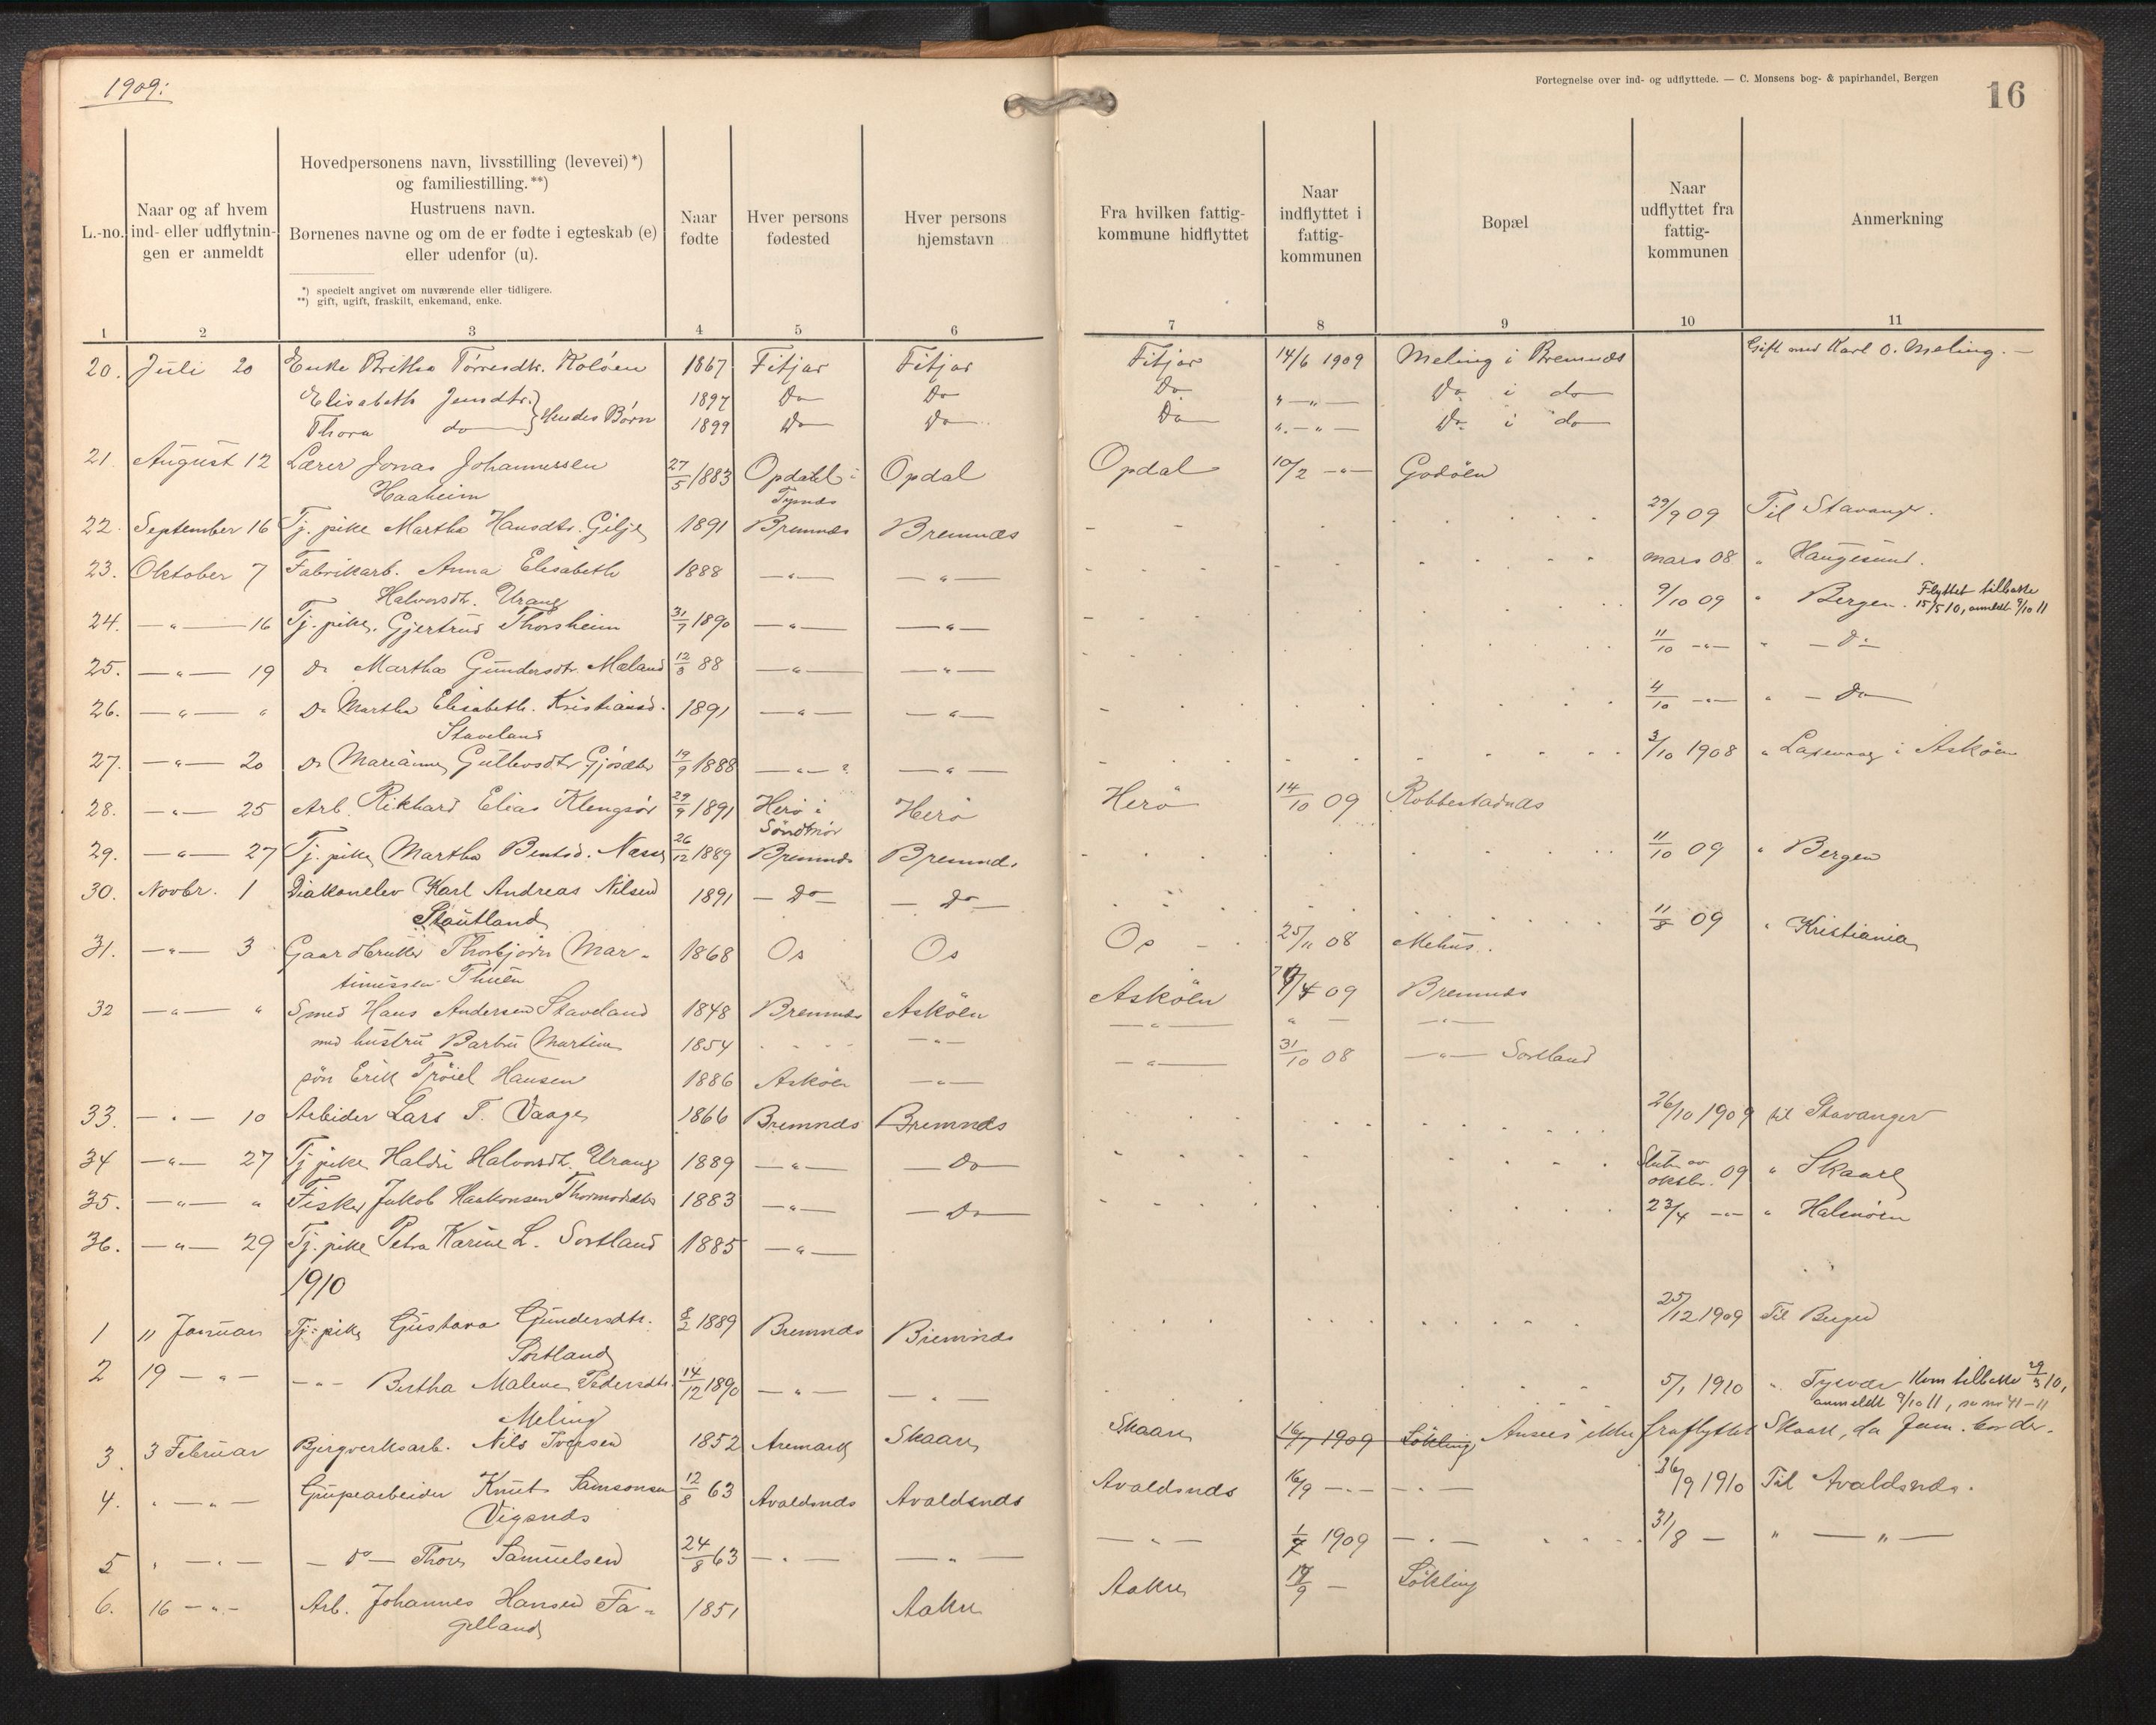 1909:
Fortegnelse over ind- og udflyttede. — C. Monsens bog- & papirhandel, Bergen
16
L.-no.
Naar og af hvem
ind- eller udflytnin-
gen er anmeldt
Hovedpersonens navn, livsstilling (levevei) *)
og familiestilling. **)
Hustruens navn.
Børnenes navne og om de er fødte i egteskab (e)
eller udenfor (u).
*) specielt angivet om nuværende eller tidligere.
**) gift, ugift, fraskilt, enkemand, enke.
Naar
fødte
Hver persons
fødested
Hver persons
hjemstavn
Fra hvilken fattig-
kommune hidflyttet
Naar
indflyttet i
fattig-
kommunen
Bopæl
Naar
udflyttet fra
fattig-
kommunen
Anmerkning
1 2 3 4 5 6 7 8 9 10 11
20. Juli 20 Enke Britha Tørresdtr. Koløen 1867 Fitjar Fitjar Fitjar 14/6 1909 Meling i Bremnes Gift med Karl O. Meling. —
Elisabeth Jensdtr. } Hendes Børn 1897 Do Do Do " — " — Do i do
Thora do 1899 Do Do Do " — " — Do i do
21. August 12 Lærer Jonas Johannessen 27/5 1883 Opdahl i Opdal Opdal 10/2 — " — Godøen
Haaheim Tysnes
22. September 16 Tj. pike Martha Hansdtr. Gilje 1891 Bremnes Bremnes 29/9 09 Til Stavanger.
23. Oktober 7 Fabrikarb. Anna Elisabeth 1888 — " — — " — mars 08 " Haugesund.
Halvorsdtr. Urang
24. — " — 16 Tj. pike. Gjertrud Thorsheim 31/7 1890 — " — — " — 9/10 09 " Bergen. Flyttet tilbake
15/5 10, anmeldt 9/10 11
25. — " — 19 Do Martha Gundersdtr. Mæland 12/3 88 — " — — " — 11/10 — " — " — Do —
26. — " — " Do Martha Elisabeth. Kristiansd. 1891 — " — — " — 4/10 — " — " — Do —
Staveland
27. — " — 20 Do Marianne Gullevsdtr Gjøsæter 19/9 1888 — " — ? — " — 3/10 1908 " Laxevaag i Askøen
28. — " — 25 Arb. Rikhard Elias Klengsør 29/9 1891 Herø i Herø Herø 14/10 09 Robbestadnes
Søndmør
29. — " — 27 Tj. pike Martha Bentsd. Næss 26/12 1889 Bremnes Bremnes 11/10 09 " Bergen
30. Novbr. 1 Diakonelev Karl Andreas Nilsen 1891 — Do — — Do — 11/8 09 " Kristiania
Stautland
31. — " — 3 Gaardbruker Thorbjørn Mar- 1868 Os Os Os 25/11 08 Mehus.
tinussen Thuen
32 — " — " Smed Hans Andersen Staveland 1848 Bremnes Askøen Askøen 09 Bremnes
med hustru Barbru Martine 1854 — " — — " — " — — " —
søn Erik Trøiel Hansen 1886 Askøen — " — — " — 31/10 08 — " — Sortland
33. — " — 10 Arbeider Lars T. Vaage 1866 Bremnes Bremnes 26/10 1909 til Stavanger
34 — " — 27 Tj. pike Haldis Halvorsdtr. Urang 1889 — " — — Do Sluten av oktbr. 09 " Skaare
35. — " — " Fisker Jakob Haakonsen Thormodsæter 1883 — " — — Do — 23/4 — " — " Halsnøen
36. — " — 29 Tj. pike Petra Karine L. Sortland 1885 — " —
1910
1 11 Januar Tj. pike Gustava Gundersdtr. 8/2 1889 Bremnes Bremnes 25/12 1909 Til Bergen
Sortland
2 19 — " — — " — Bertha Malene Pedersdtr. 14/12 1890 — " — — " — 5/1 1910 " Tysvær Kom tilbake 29/3 10,
Meling anmeldt 9/10 11, se nr 41-11
3. 3 Februar Bjergverksarb. Nils Iversen 1852 Aremark Skaare Skaare 16/7 1909 Løkling Ansees ikke fraflyttet Skaare, da fam. bor der.
4. " — " — Grupearbeider Knut Samsonsen 12/8 63 Avaldsnes Avaldsnes Avaldsnes 16/9 — " — — " — 16/9 1910 Til Avaldsnes.
Vigsnes
5 " — " — — Do — Thore Samuelsen 24/8 63 — " — — " — — " — 1/7 1909 — " — 31/8 — " — " —
6. 16 — " — Arb. Johannes Hansen Fa- 1851 Aakre Aakre 14/9 — Løkling
gelland